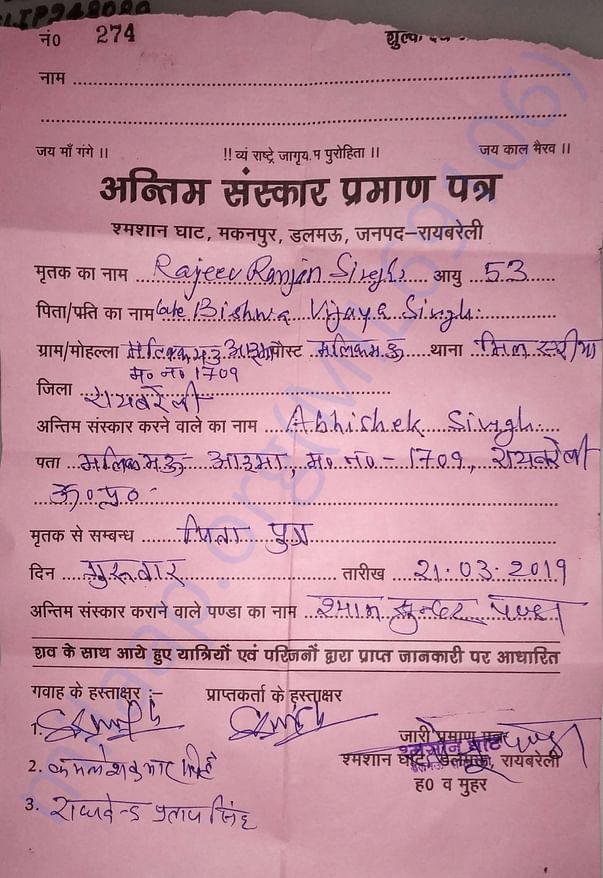 नं0 274
नाम
जय माँ गंगे ।। !! व्यं राष्ट्रे जागृय.म पुरोहिता ।। जय काल भैरव ।।
अन्तिम संस्कार प्रमाण पत्र
श्मशान घाट, मकनपुर, डलमऊ, जनपद–रायबरेली
मृतक का नाम Rajeev Ranjan Singh आयु 53
पिता/पति का नाम Late Bishwa Vijaya Singh
ग्राम/मोहल्ला मलिकमऊ आइमा पोस्ट मलिकमऊ थाना मिल एरीया
म० न० 1709
जिला रायबरेली
अन्तिम संस्कार करने वाले का नाम Abhishek Singh
पता मलिकमऊ आइमा, म० न० - 1709, रायबरेली
उ० प्र०
मृतक से सम्बन्ध पिता पुत्र
दिन गुरुवार तारीख 21.03.2019
अन्तिम संस्कार कराने वाले पण्डा का नाम श्याम सुन्दर पण्डा
शव के साथ आये हुए यात्रियों एवं परिजनों द्वारा प्राप्त जानकारी पर आधारित
गवाह के हस्ताक्षर :– प्राप्तकर्ता के हस्ताक्षर
1.
जारी प्रमाण पत्र
श्मशान घाट
श्मशान घाट, डलमऊ, रायबरेली
2. कमलेश कुमार सिंह
ह0 व मुहर
3. राघवेन्द्र प्रताप सिंह
milaap.org(MIL69106)